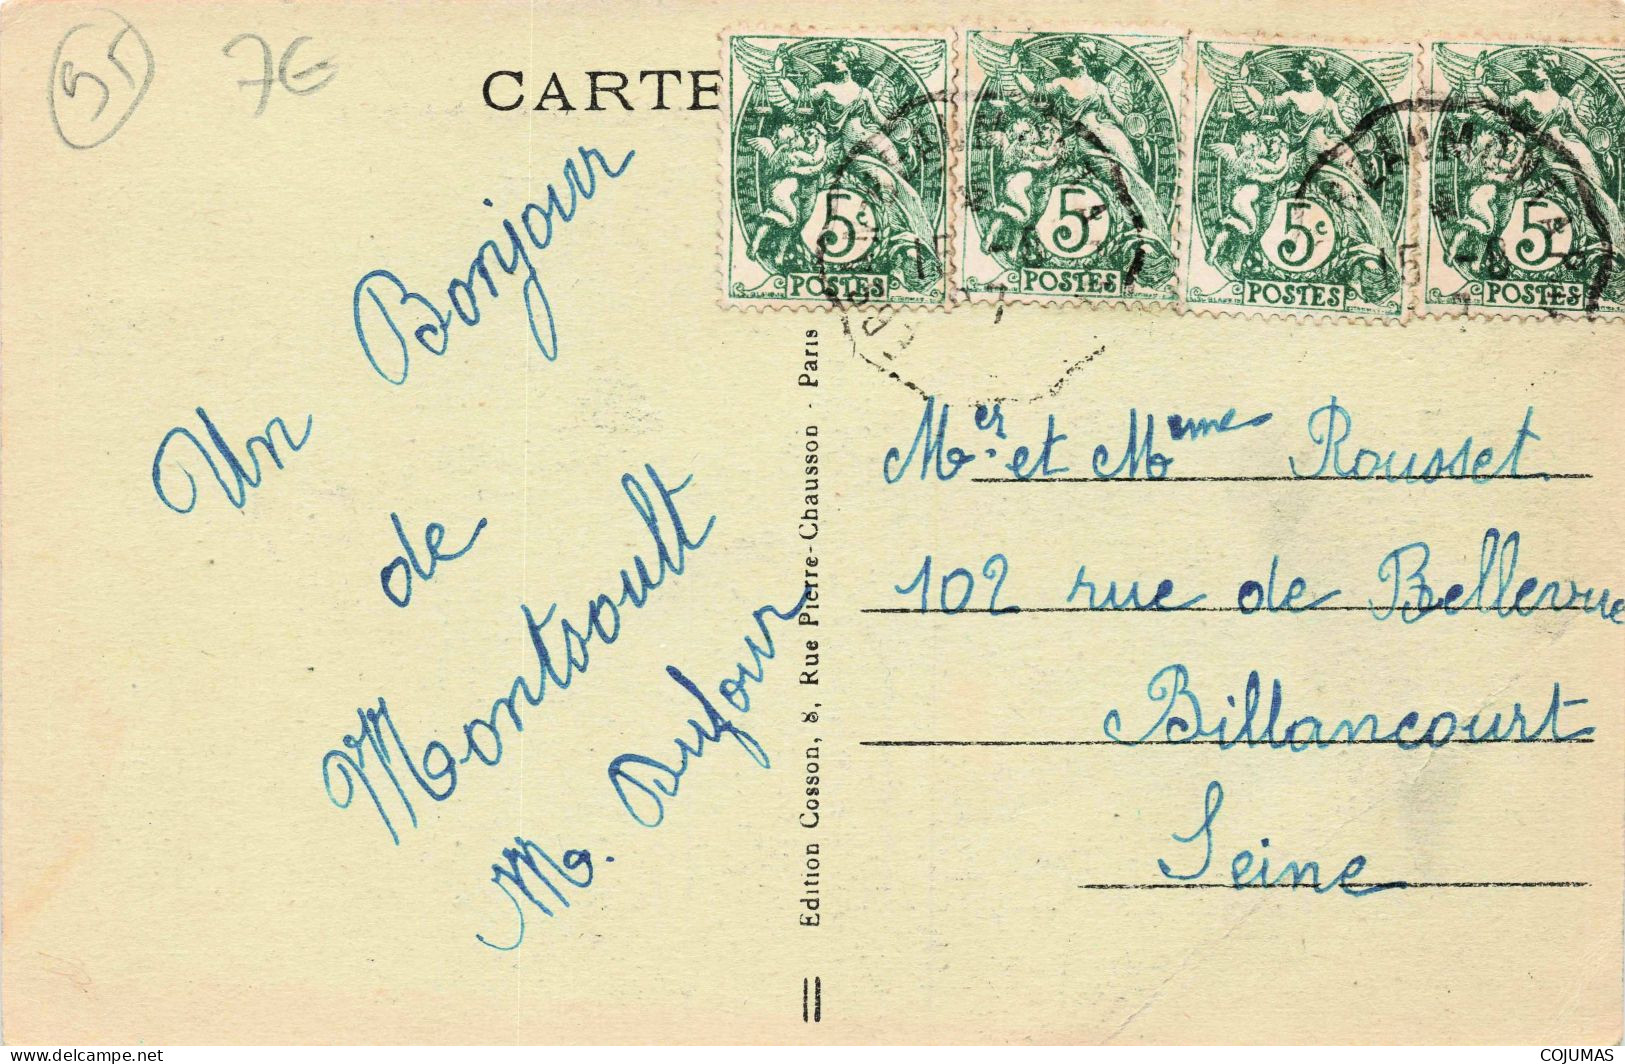 95 7€
CARTE
5c POSTES
5 POSTES
5c POSTES
5 POSTES
Un Bonjour
de
Montsoult
M. Dufour
Edition Cosson, 8, Rue Pierre-Chausson - Paris
Mer. et Mme Rousset
102 rue de Bellevue
Billancourt
Seine
delcampe.net
COJUMAS